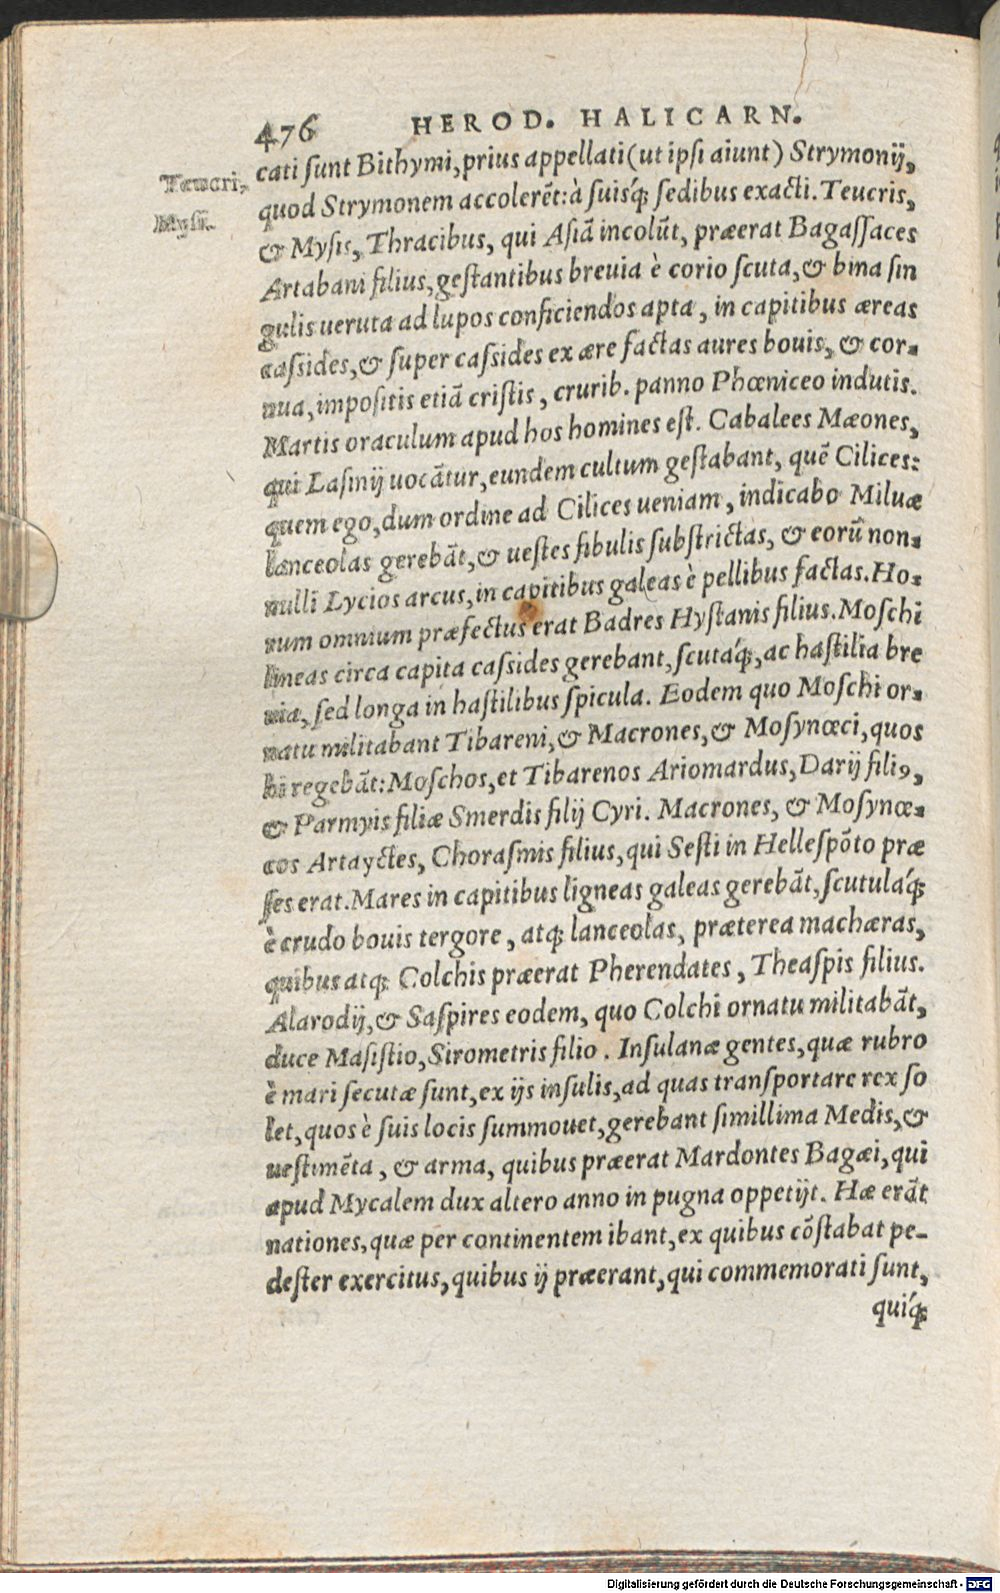 476 HEROD. HALICARN.
Teucri,
Mysi.
cati sunt Bithymi, prius appellati (ut ipsi aiunt) Strymonij,
quod Strymonem accolerẽt: à suisq́; sedibus exacti. Teucris,
& Mysis, Thracibus, qui Asiã incolũt, præerat Bagassaces
Artabani filius, gestantibus breuia è corio scuta, & bina sin
gulis ueruta ad lupos conficiendos apta, in capitibus æreas
cassides, & super cassides ex ære factas aures bouis, & cor-
nua, impositis etiã cristis, crurib. panno Phœniceo indutis.
Martis oraculum apud hos homines est. Cabalees Mæones,
qui Lasinij uocãtur, eundem cultum gestabant, quẽ Cilices:
quem ego, dum ordine ad Cilices ueniam, indicabo Miluæ
lanceolas gerebãt, & uestes fibulis substrictas, & eorũ non-
nulli Lycios arcus, in capitibus galeas è pellibus factas. Ho-
rum omnium præfectus erat Badres Hystanis filius. Moschi
lineas circa capita cassides gerebant, scutaq́;, ac hastilia bre
uia, sed longa in hastilibus spicula. Eodem quo Moschi or-
natu militabant Tibareni, & Macrones, & Mosynœci, quos
hi regebãt: Moschos, et Tibarenos Ariomardus, Darij filiꝰ,
& Parmyis filiæ Smerdis filij Cyri. Macrones, & Mosynœ-
cos Artayctes, Chorasmis filius, qui Sesti in Hellespõto præ
ses erat. Mares in capitibus ligneas galeas gerebãt, scutulaq́;
è crudo bouis tergore, atq; lanceolas, præterea machæras,
quibus atq; Colchis præerat Pherendates, Theaspis filius.
Alarodij, & Saspires eodem, quo Colchi ornatu militabãt,
duce Masistio, Sirometris filio. Insulanæ gentes, quæ rubro
è mari secutæ sunt, ex ijs insulis, ad quas transportare rex so
let, quos è suis locis summouet, gerebant simillima Medis, &
uestimẽta, & arma, quibus præerat Mardontes Bagæi, qui
apud Mycalem dux altero anno in pugna oppetijt. Hæ erãt
nationes, quæ per continentem ibant, ex quibus cõstabat pe-
dester exercitus, quibus ij præerant, qui commemorati sunt,
quiq́;
Digitalisierung gefördert durch die Deutsche Forschungsgemeinschaft - DFG